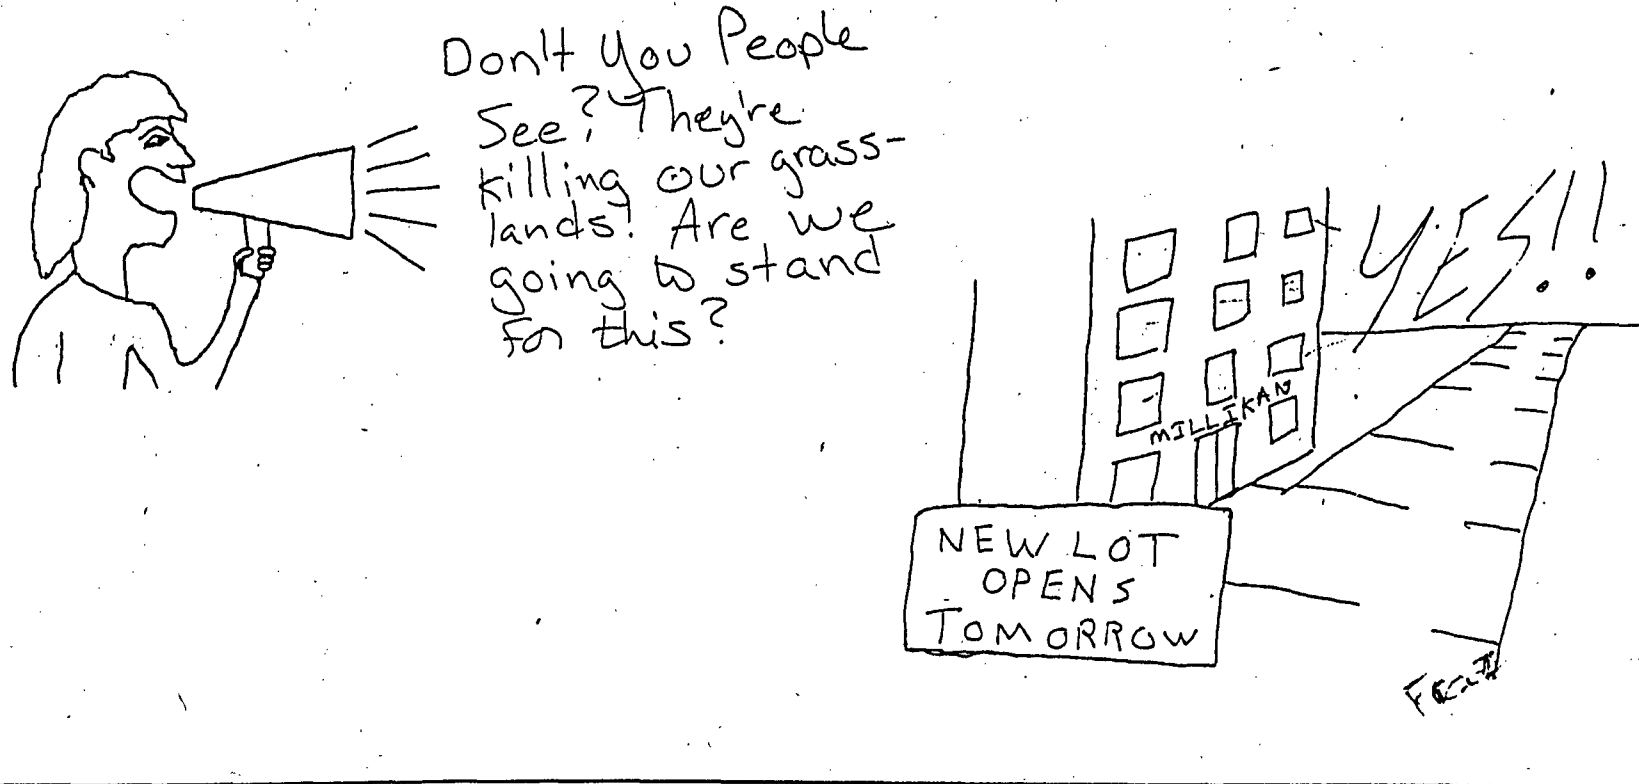 Don't You People
See? They're
killing our grass-
lands! Are we
going to stand
for this?
YES!!
MILLIKAN
NEW LOT
OPENS
TOMORROW